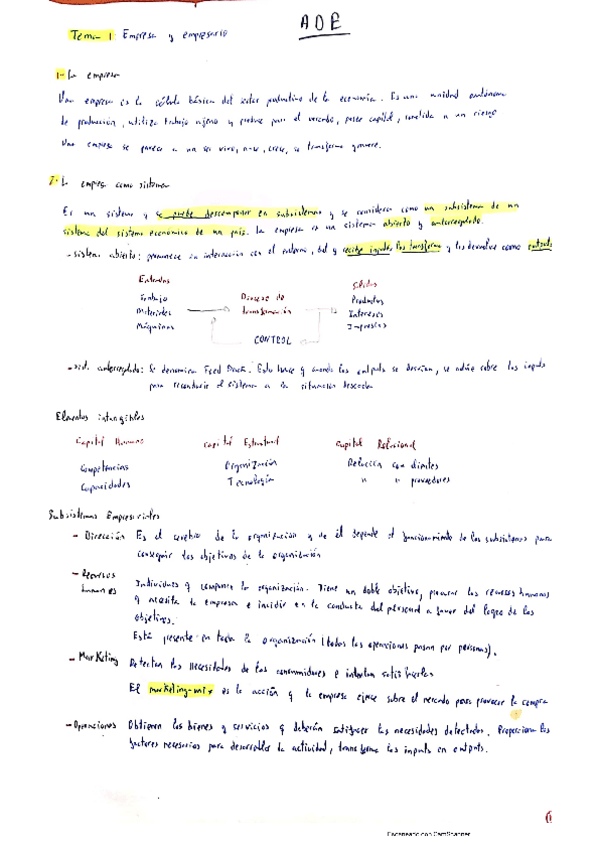 ADE
Tema 1: Empresa y empresario
1- La empresa
Una empresa es la célula básica del sector productivo de la economía. Es una unidad autónoma
de producción, utiliza trabajo ajeno y produce para el mercado, posee capital, sometida a un riesgo
Una empresa se parece a un ser vivo, nace, crece, se transforma y muere.
2- La empresa como sistema
Es un sistema y se puede descomponer en subsistemas y se considera como un subsistema de un
sistema del sistema económico de un país. La empresa es un sistema abierto y autorregulado.
- sistema abierto: permanece en interacción con el entorno, del q recibe inputs, los transforma y los devuelve como outputs
Entradas
Trabajo
Materiales
Máquinas
Proceso de
transformación
CONTROL
Salidas
Productos
Intereses
Impuestos
- sist. autorregulado: Se denomina Feed Back. Esto hace q cuando los outputs se desvían, se actúe sobre los inputs
para reconducir el sistema a la situación deseada
Elementos intangibles
Capital Humano
Competencias
Capacidades
Capital Estructural
Organización
Tecnología
Capital Relacional
Relación con clientes
" " proveedores
Subsistemas Empresariales
- Dirección Es el cerebro de la organización y de él depende el funcionamiento de los subsistemas para
conseguir los objetivos de la organización
- Recursos
humanos
Individuos q componen la organización. Tiene un doble objetivo, procurar los recursos humanos
q necesita la empresa e incidir en la conducta del personal a favor del logro de los
objetivos.
Está presente en toda la organización (todas las operaciones pasan por personas).
- Marketing Detectan las necesidades de los consumidores e intentan satisfacerlas
El marketing-mix es la acción q la empresa ejerce sobre el mercado para provocar la compra
- Operaciones Obtienen los bienes y servicios q deberán satisfacer las necesidades detectadas. Proporcionan los
factores necesarios para desarrollar la actividad, transforma los inputs en outputs.
Escaneado con CamScanner